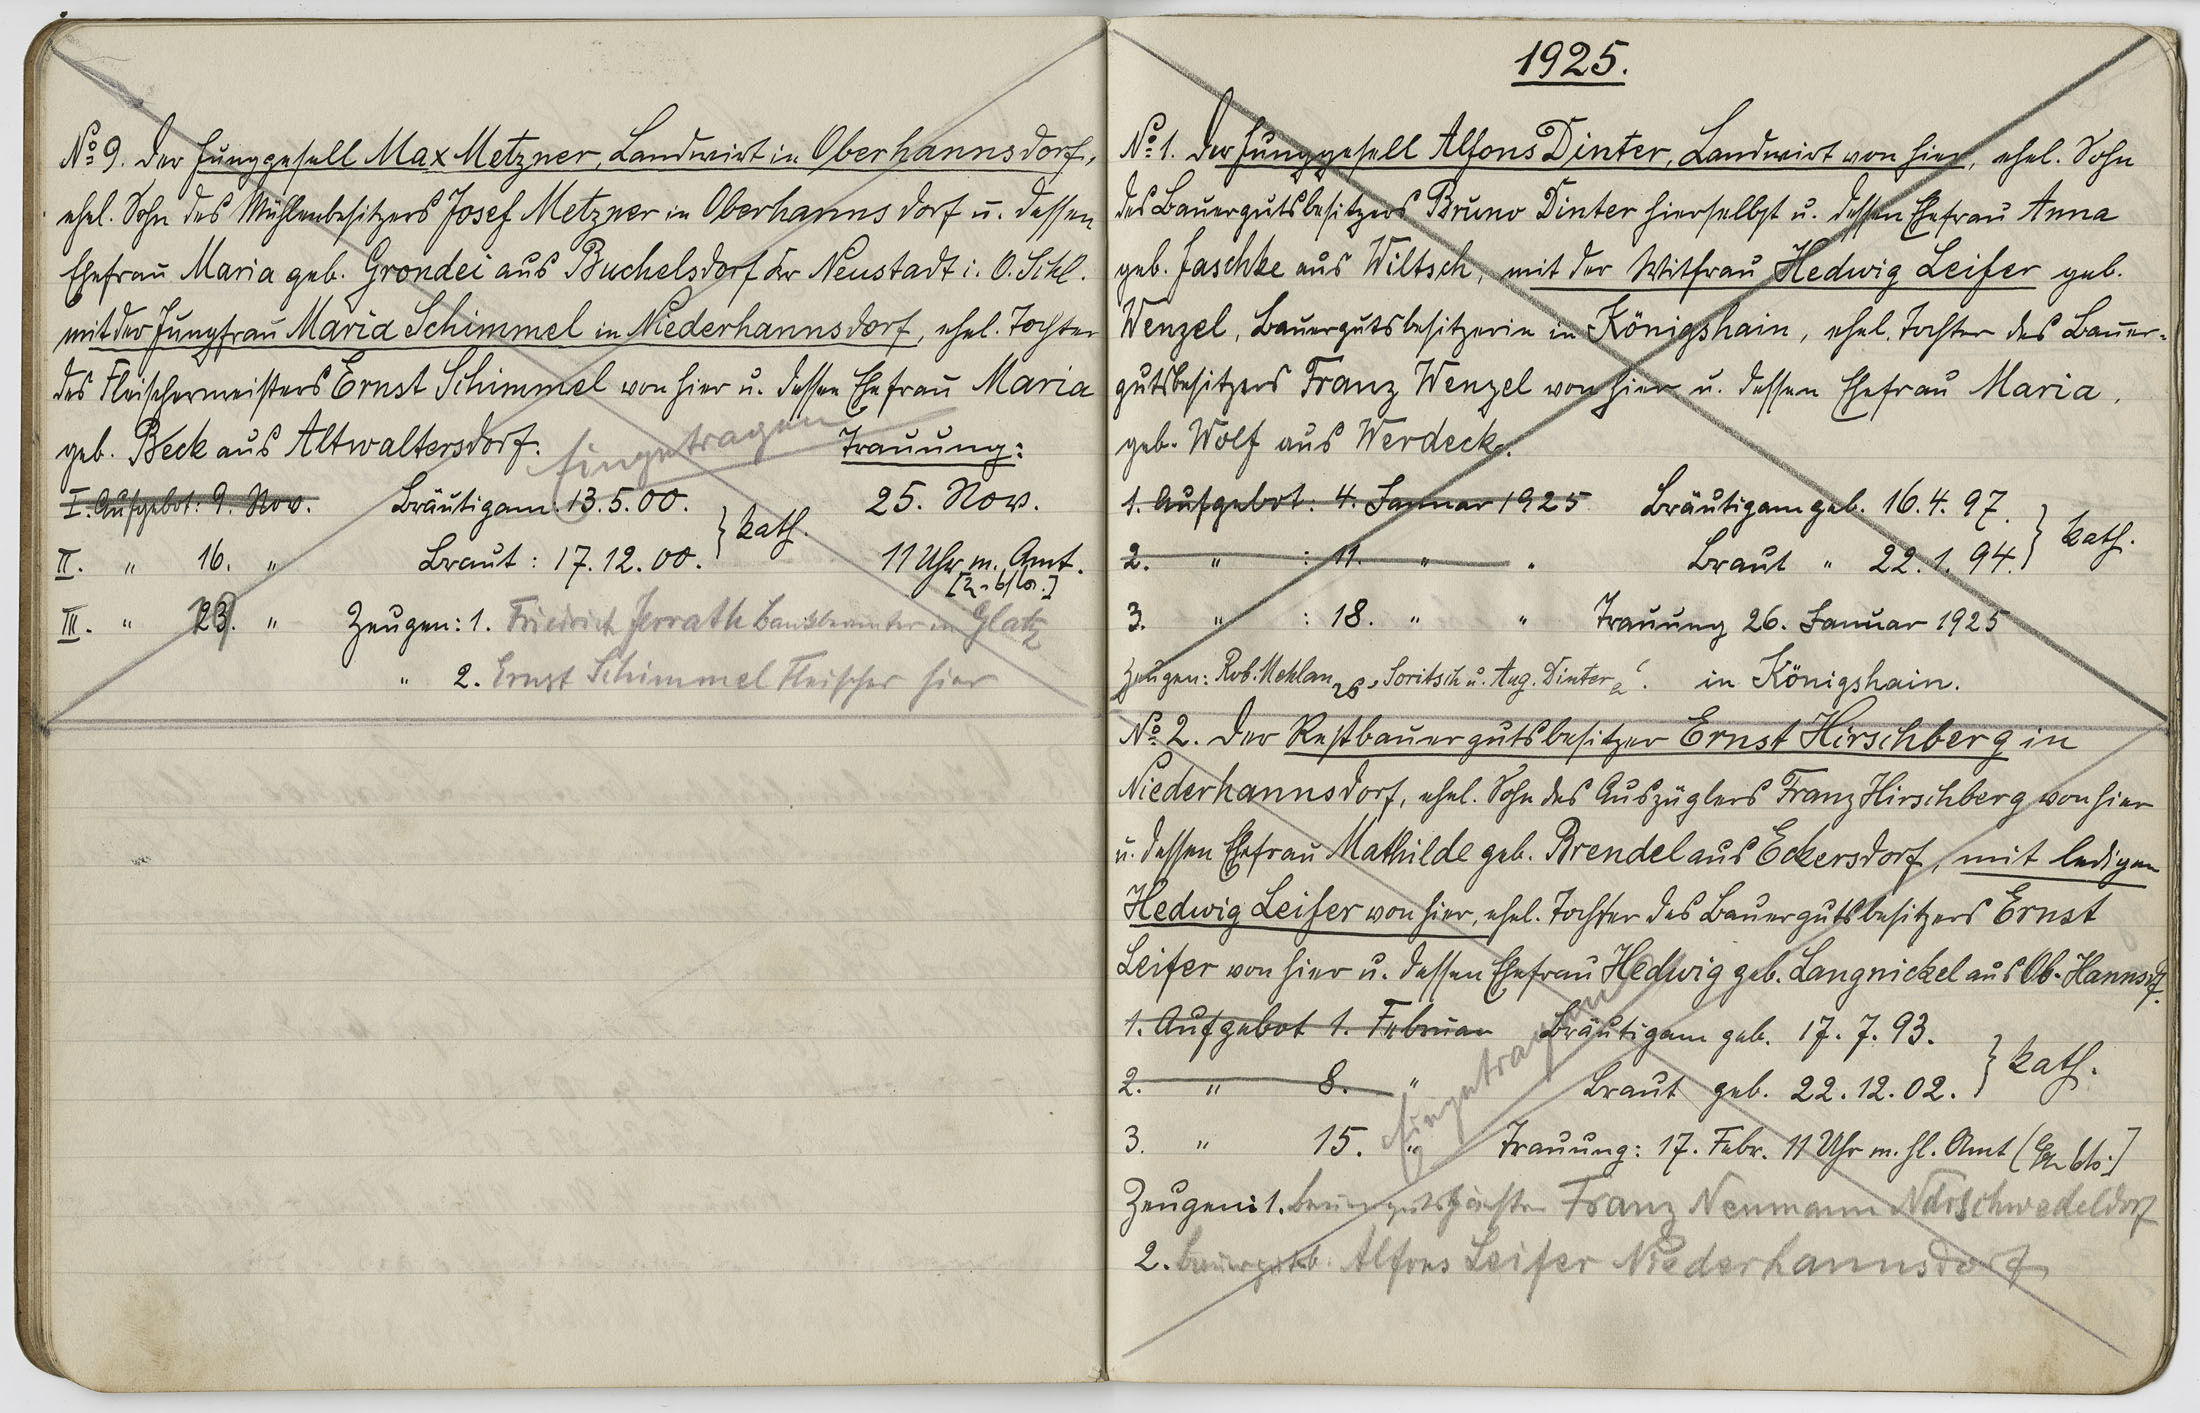 No 9. Der Junggesell Max Metzner, Landwirt in Oberhannsdorf,
ehel. Sohn des Mühlenbesitzers Josef Metzner in Oberhannsdorf u. dessen
Ehefrau Maria geb. Grondei aus Buchelsdorf Kr Neustadt i. O. Schl.
mit der Jungfrau Maria Schimmel in Niederhannsdorf, ehel. Tochter
des Fleischermeisters Ernst Schimmel von hier u. dessen Ehefrau Maria
geb. Beck aus Altwaltersdorf. Eingetragen Trauung:
I. Aufgebot: 9. Nov. Bräutigam: 13.5.00. } kath. 25. Nov.
II. " 16. " Braut: 17.12.00. 11 Uhr m. Amt.
III. " 23. " Zeugen: 1. Friedrich Jerrath Bankbeamter in Glatz
" 2. Ernst Schimmel Fleischer hier
1925.
No 1. Der Junggesell Alfons Dinter, Landwirt von hier, ehel. Sohn
des Bauergutsbesitzers Bruno Dinter hierselbst u. dessen Ehefrau Anna
geb. Jaschke aus Wiltsch, mit der Witfrau Hedwig Leifer geb.
Wenzel, Bauergutsbesitzerin in Königshain, ehel. Tochter des Bauer=
gutsbesitzers Franz Wenzel von hier u. dessen Ehefrau Maria,
geb. Wolf aus Werdeck.
1. Aufgebot: 4. Januar 1925 Bräutigam geb. 16.4.97. } kath.
2. " : 11. " " Braut " 22.1.94.
3. " : 18. " " Trauung 26. Januar 1925
Zeugen: Rob. Mehlan, Soritsch u. Aug. Dinter in Königshain.
No 2. Der Restbauergutsbesitzer Ernst Hirschberg in
Niederhannsdorf, ehel. Sohn des Auszüglers Franz Hirschberg von hier
u. dessen Ehefrau Mathilde geb. Brendel aus Eckersdorf, mit ledigen
Hedwig Leifer von hier, ehel. Tochter des Bauergutsbesitzers Ernst
Leifer von hier u. dessen Ehefrau Hedwig geb. Langnickel aus Ob-Hannsdf.
1. Aufgebot 1. Februar Bräutigam geb. 17.7.93. } kath.
2. " 8. " Braut geb. 22.12.02.
3. " 15. " Trauung: 17. Febr. 11 Uhr m. hl. Amt
Eingetragen
Zeugen: 1. Franz Neumann Ndrschwedeldorf
2. Bauergutsb. Alfons Leifer Niederhannsdorf